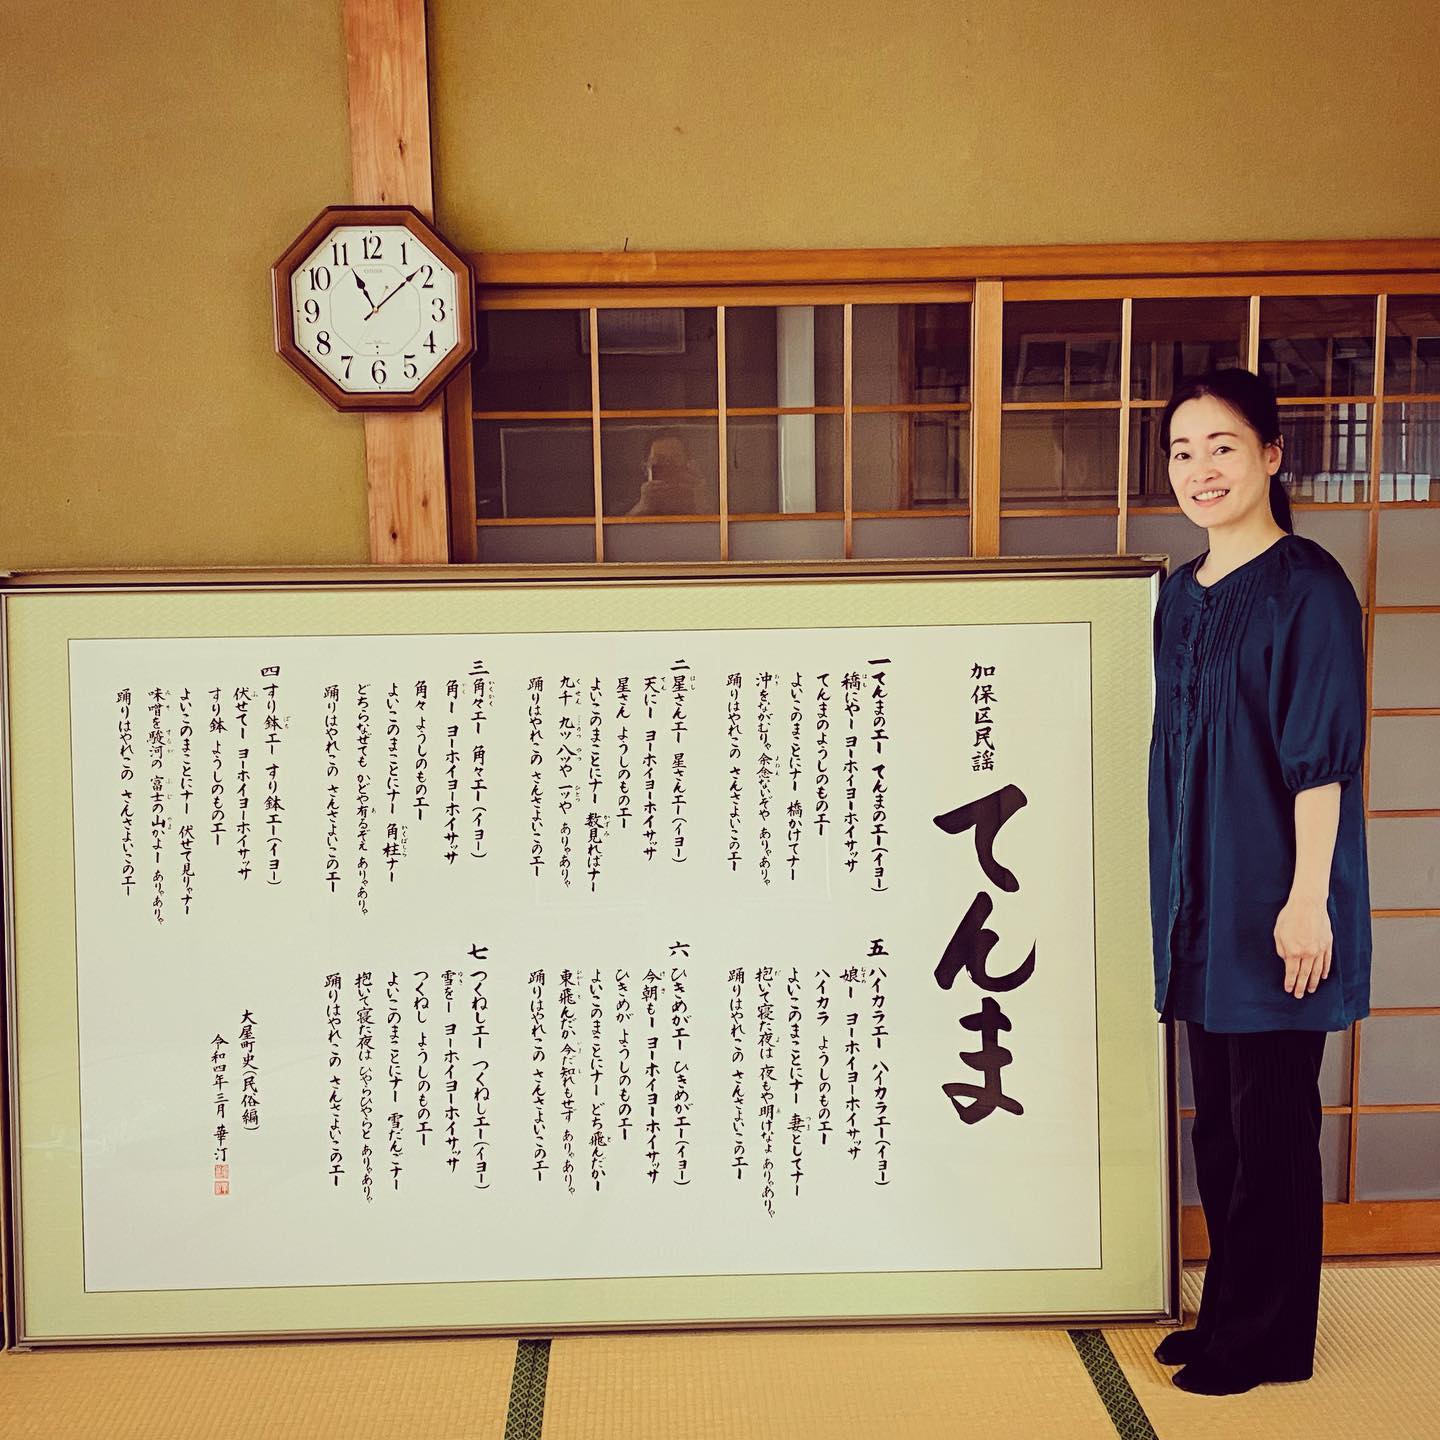 加保区民謡
てんま
一 てんまのエー てんまのエー(イヨー)
橋にやー ヨーホイヨーホイサッサ
てんまのようしのものエー
よいこのまことにナー 橋かけてナー
沖をながむりゃ 余念ないぞや ありゃありゃ
踊りはやれこの さんさよいこのエー
二 星さんエー 星さんエー(イヨー)
天にー ヨーホイヨーホイサッサ
星さん ようしのものエー
よいこのまことにナー 数見ればナー
九千 九ツ 八ツや 一ツや ありゃありゃ
踊りはやれこの さんさよいこのエー
三 角々エー 角々エー(イヨー)
角ー ヨーホイヨーホイサッサ
角々 ようしのものエー
よいこのまことにナー 角柱ナー
どちらなせても かどや有るぞえ ありゃありゃ
踊りはやれこの さんさよいこのエー
四 すり鉢エー すり鉢エー(イヨー)
伏せてー ヨーホイヨーホイサッサ
すり鉢 ようしのものエー
よいこのまことにナー 伏せて見りゃナー
味噌を駿河の 富士の山かよー ありゃありゃ
踊りはやれこの さんさよいこのエー
五 ハイカラエー ハイカラエー(イヨー)
娘ー ヨーホイヨーホイサッサ
ハイカラ ようしのものエー
よいこのまことにナー 妻としてナー
抱いて寝た夜は 夜もや明けなよ ありゃありゃ
踊りはやれこの さんさよいこのエー
六 ひきめがエー ひきめがエー(イヨー)
今朝もー ヨーホイヨーホイサッサ
ひきめが ようしのものエー
よいこのまことにナー どち飛んだかー
東飛んだか 今だ知れもせず ありゃありゃ
踊りはやれこの さんさよいこのエー
七 つくねしエー つくねしエー(イヨー)
雪をー ヨーホイヨーホイサッサ
つくねし ようしのものエー
よいこのまことにナー 雪だんごナー
抱いて寝た夜は ひやらひやらと ありゃありゃ
踊りはやれこの さんさよいこのエー
大屋町史(民俗編)
令和四年三月 華汀
CITIZEN
12
1
2
3
4
5
6
7
8
9
10
11